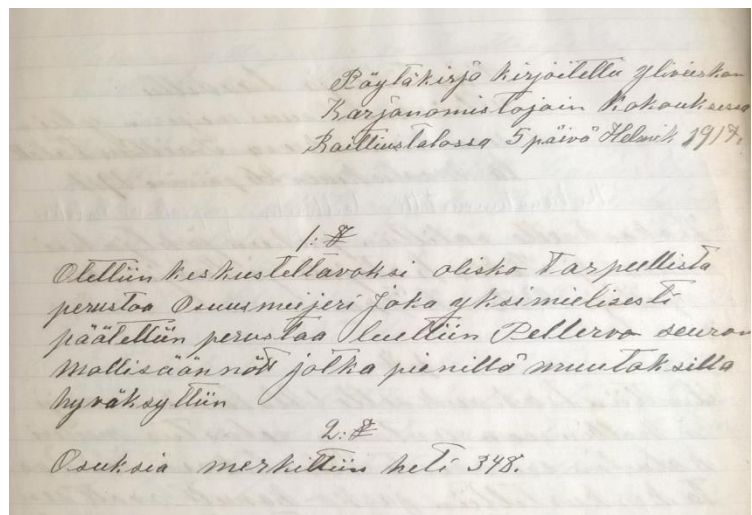 Pöytäkirja kirjoitettu Ylivieskan
Karjanomistajain Kokouksessa
Raittiustalossa 5 päivä Helmik 1917.
1: §
Otettiin keskusteltavaksi olisko tarpeellista
perustaa Osuusmeijeri joka yksimielisesti
päätettiin perustaa luettiin Pellervo seuran
mallisäännöt jotka pienillä muutoksilla
hyväksyttiin
2: §
Osuksia merkittiin heti 348.